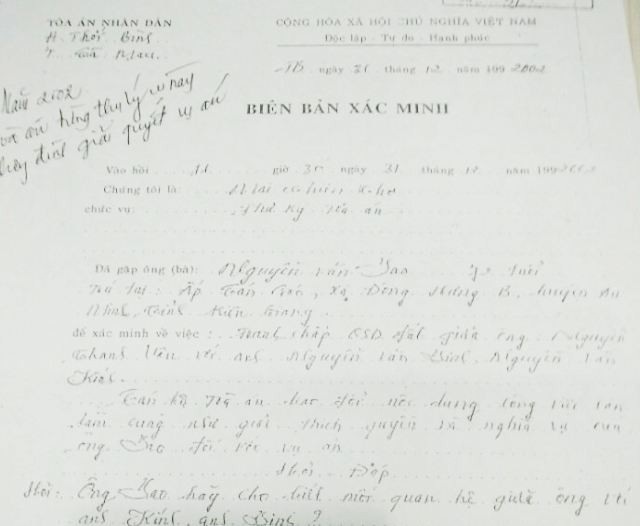 TÒA ÁN NHÂN DÂN
H. Thới Bình
T. Cà Mau
CỘNG HÒA XÃ HỘI CHỦ NGHĨA VIỆT NAM
Độc lập - Tự do - Hạnh phúc
TB ngày 31 tháng 12 năm 199 2002
Năm 2002
tòa án không thụ lý vụ này
giải quyết vụ án
BIÊN BẢN XÁC MINH
Vào hồi 11 giờ 30 ngày 31 tháng 12 năm 199 2002
Chúng tôi là: Mai
chức vụ: Thư ký tòa án
Đã gặp ông (bà): Nguyễn Văn tuổi
Trú tại: Ấp Tân xã Đông Hưng B, huyện An
Minh, tỉnh Kiên Giang
để xác minh về việc: Tranh chấp QSD đất giữa ông: Nguyễn
Thanh Vân với anh Nguyễn Văn Bình, Nguyễn Văn
Kính.
Cán bộ tòa án trao đổi nội dung công việc cần
làm cũng như giải thích quyền và nghĩa vụ của
ông đối với vụ án
Hỏi Đáp
Hỏi: Ông hãy cho biết mối quan hệ giữa ông với
anh Kính, anh Bình?